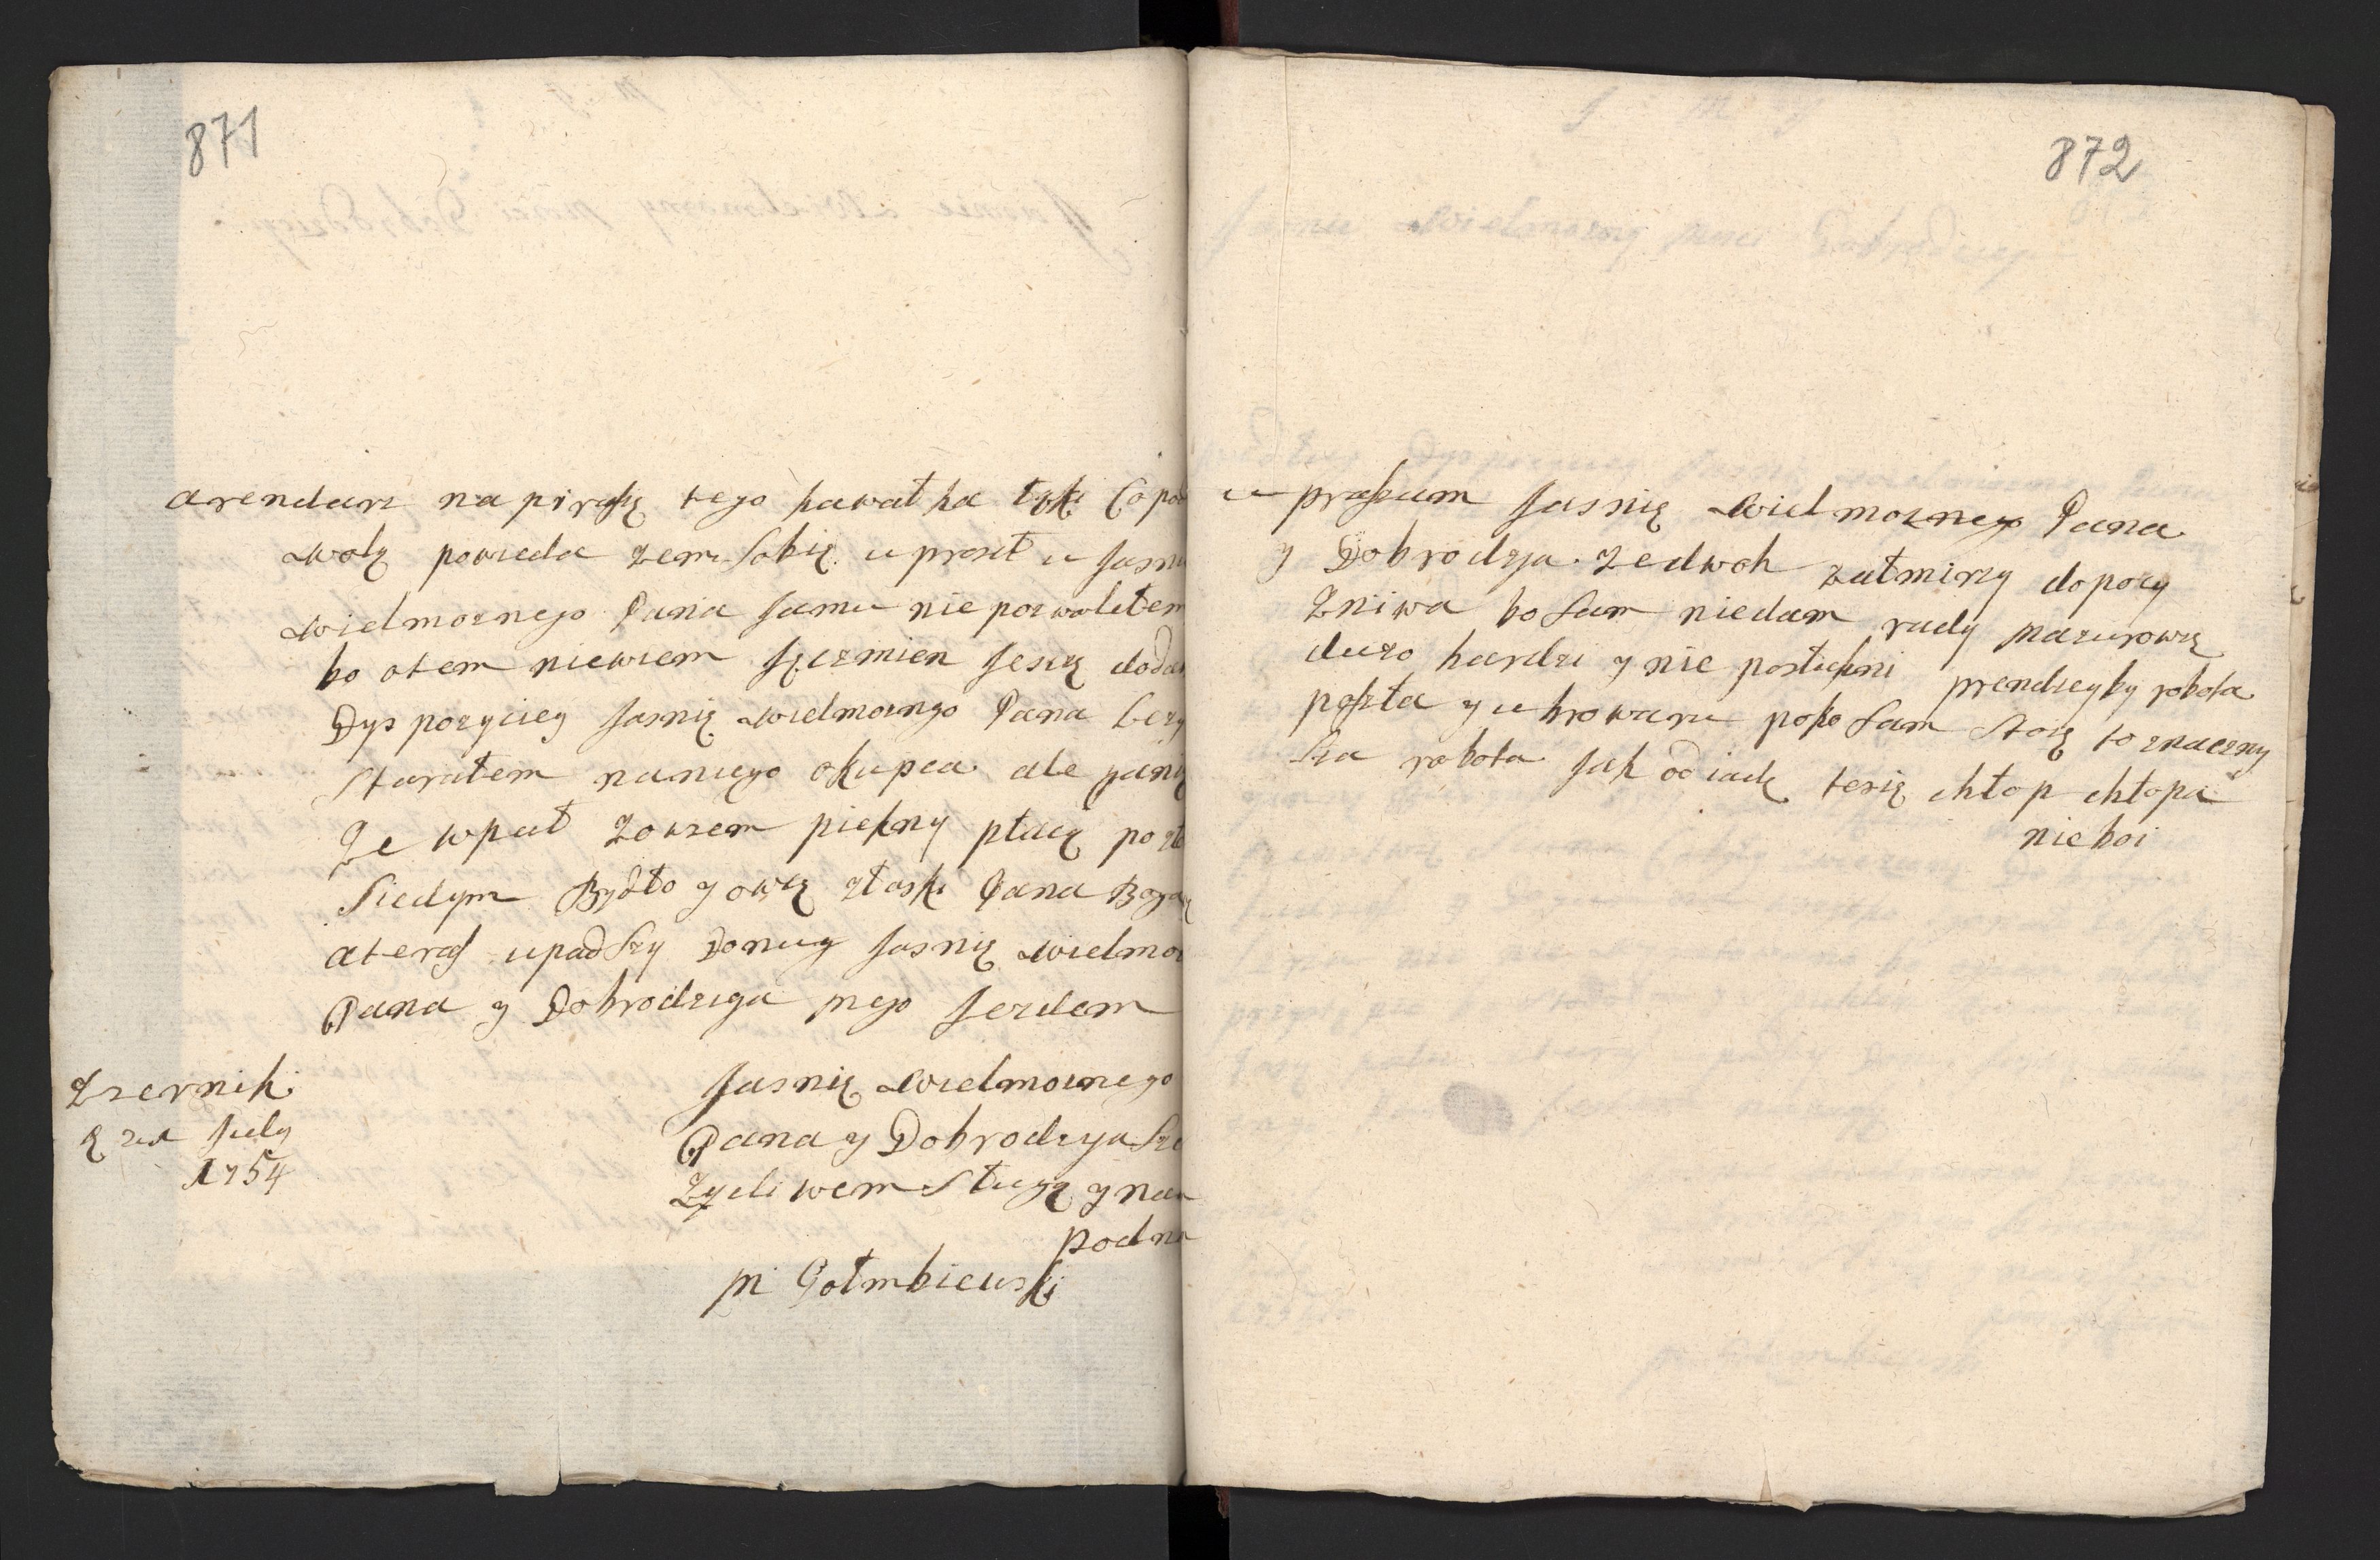 871
arendarz na piraskę tego kawałka łąki Co poz
wolę powieda zem Sobię uprosił u Jasni
wielmoznego Pana Jamu nie pozwoliłem
bo otem niewiem Jęczmien Jeszę doda
Dyspozyciey Jasnię wielmozngo Pana
Starałem naniego okupca ale
Ze wpuł zowsem piekny płacą po zł
Siedym Bydło y owcę złaski Pana Boga
ateras upadSzy Donug Jasnię wielmoz
Pana y Dobrodzieja mego Jezdem
Jasnię wielmoznego
Pana y Dobrodzyja
Zycliwem Sługą y
Podno
M Gołmbiewski
Zzernik
July
1754
872
upraszam Jasnię wielmoznego Pana
y Dobrodzyja. Zedwoh załmirzy dopory
Zniwa bo sam niedam rady Mazurowię
duzo hardzi y nie posłuszni prendzeyby robota
poszła y u browaru poko sam Stoię to znaczny
Sza robota Jak odiadę tesię chłop chłopa
nieboi